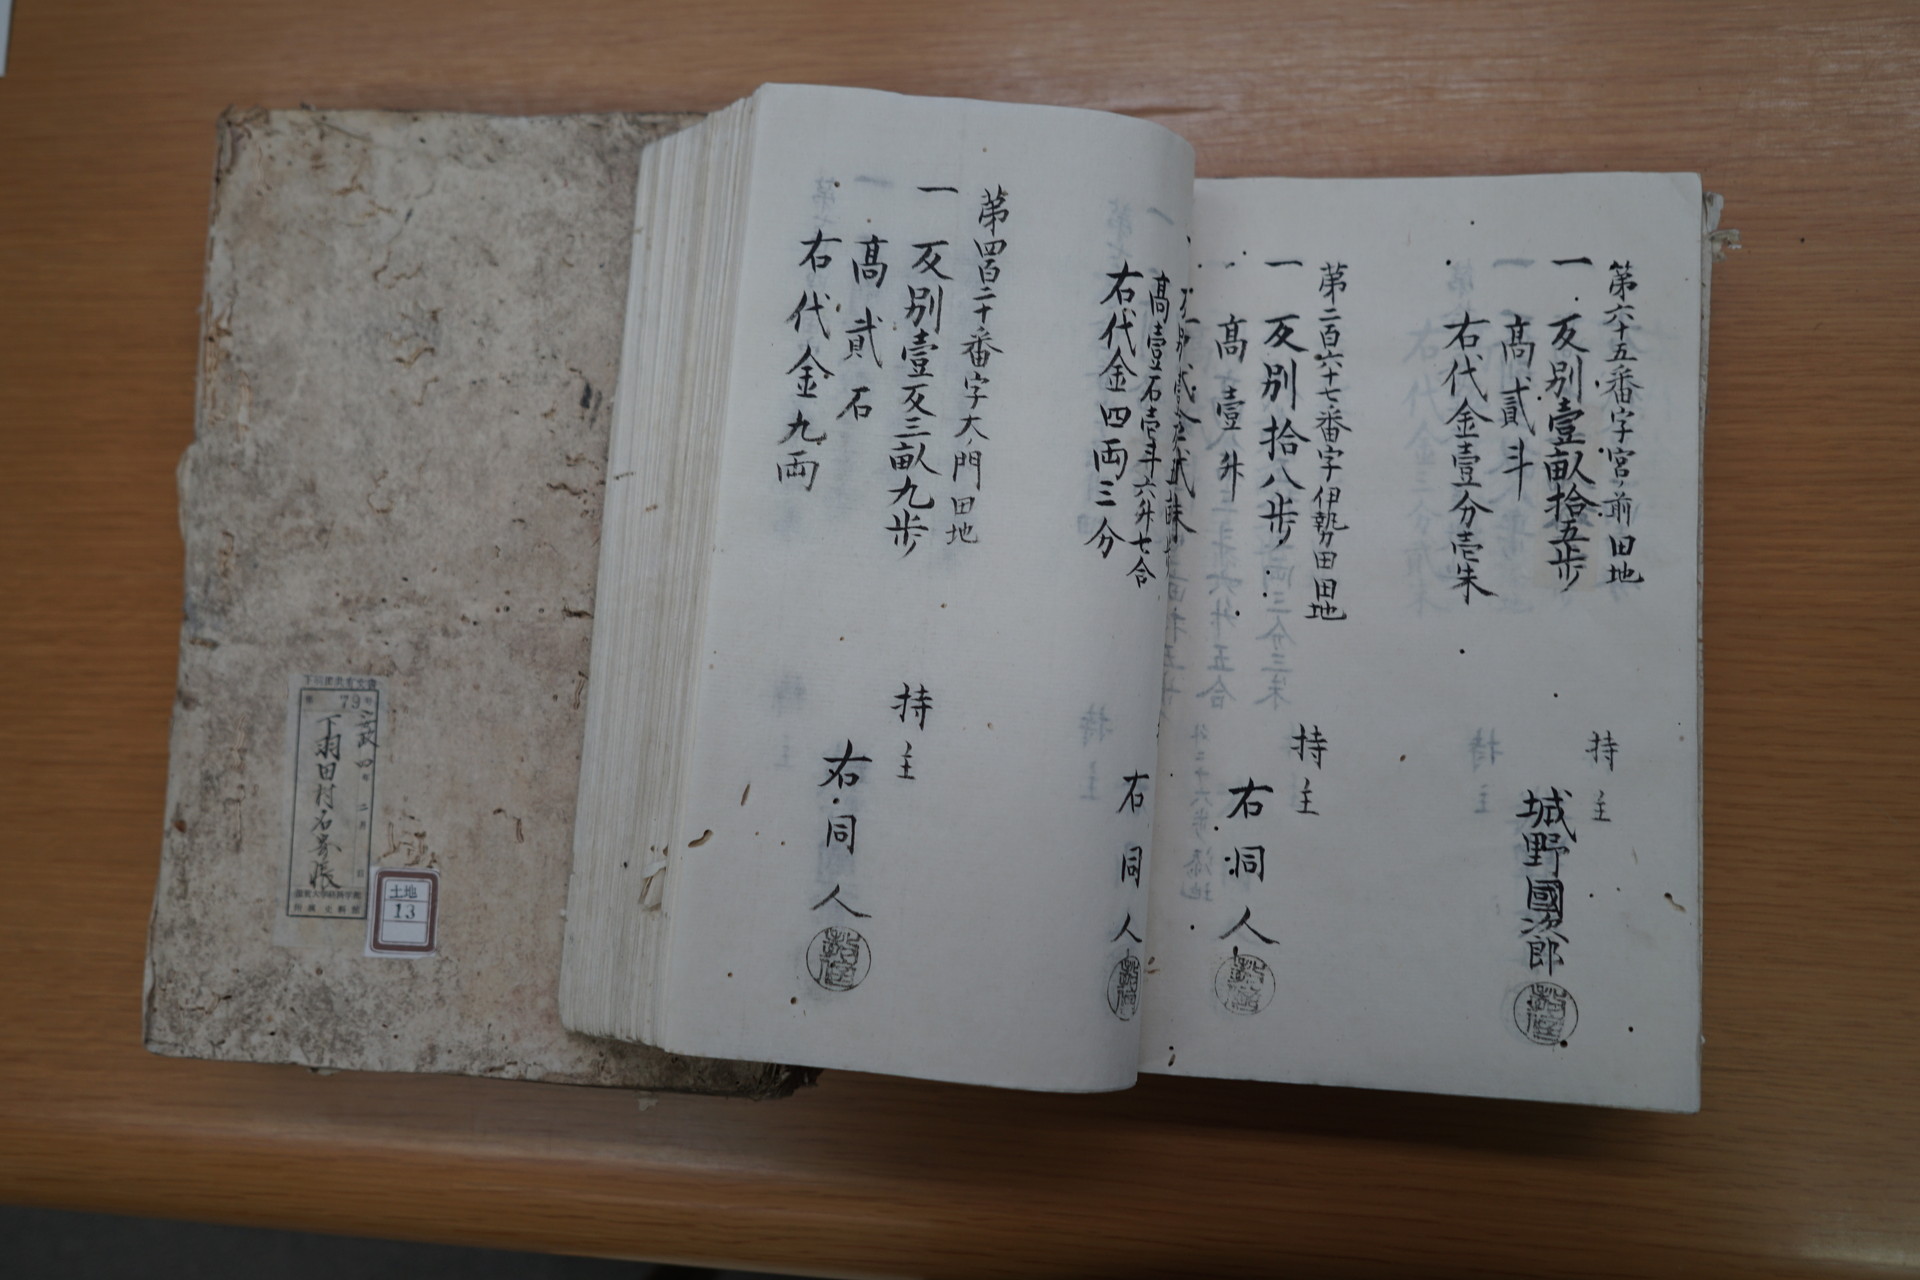 第六十五番字宮ノ前田地
一 反別壹畝拾五歩
髙貳斗
右代金壹分壱朱
持主
城野國次郎
第二百六十七番字伊勢田田地
一 反別拾八歩
髙壹升
持主
右洞人
髙壹石壱斗六升七合
右代金四両三分
右同人
第四百二十番字大ノ門田地
一 反別壹反三畝九歩
髙貳石
右代金九両
持主
右同人
79
安政四年二月
下羽田村名寄帳
土地
13